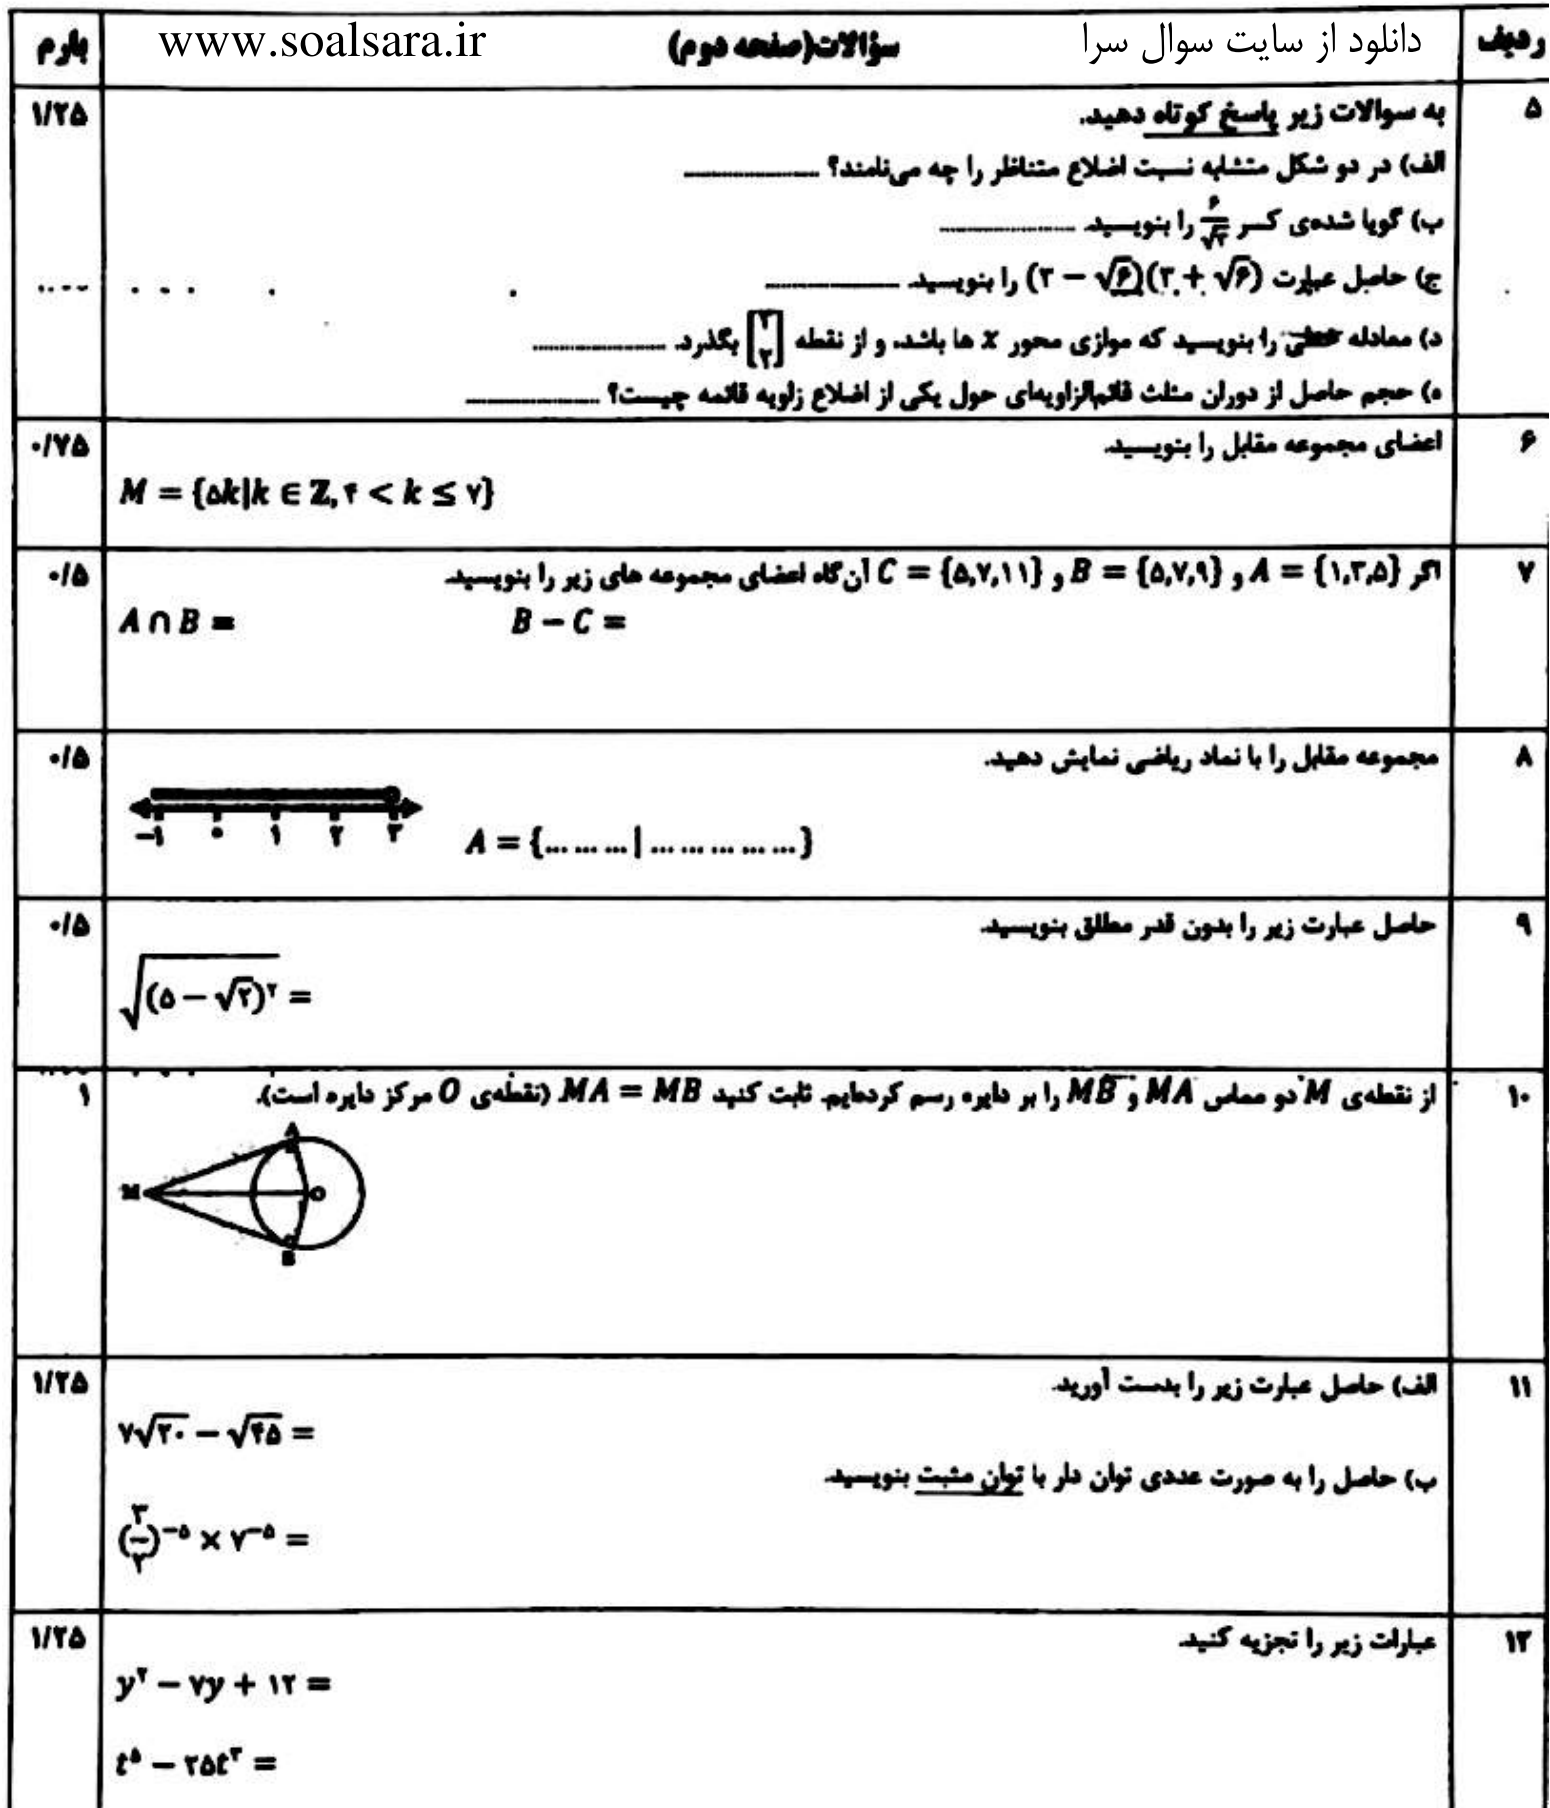 ردیف دانلود از سایت سوال سرا سؤالات(صفحه دوم) www.soalsara.ir بارم
۵ به سوالات زیر پاسخ کوتاه دهید. ۱/۲۵
الف) در دو شکل متشابه نسبت اضلاع متناظر را چه می‌نامند؟ ....................
ب) گویا شده‌ی کسر ۶/√۲ را بنویسید. ....................
ج) حاصل عبارت (۳ − √۶)(۳ + √۶) را بنویسید. ....................
د) معادله خطی را بنویسید که موازی محور x ها باشد، و از نقطه بگذرد. ....................
ه) حجم حاصل از دوران مثلث قائم‌الزاویه‌ای حول یکی از اضلاع زاویه قائمه چیست؟ ....................
۶ اعضای مجموعه مقابل را بنویسید. ۰/۷۵
M = {۵k|k ∈ Z, ۴ < k ≤ ۷}
۷ اگر A = {۱,۳,۵} و B = {۵,۷,۹} و C = {۵,۷,۱۱} آن‌گاه اعضای مجموعه های زیر را بنویسید. ۰/۵
A ∩ B = B − C =
۸ مجموعه مقابل را با نماد ریاضی نمایش دهید. ۰/۵
−۱ ۰ ۱ ۲ ۳ A = {... ... ... | ... ... ... ... ...}
۹ حاصل عبارت زیر را بدون قدر مطلق بنویسید. ۰/۵
√(۵ − √۲)² =
۱۰ از نقطه‌ی M دو مماس MA و MB را بر دایره رسم کرده‌ایم. ثابت کنید MA = MB (نقطه‌ی O مرکز دایره است). ۱
A
M O
B
۱۱ الف) حاصل عبارت زیر را بدست آورید. ۱/۲۵
۷√۲۰ − √۴۵ =
ب) حاصل را به صورت عددی توان دار با توان مثبت بنویسید.
(۳/۲)⁻⁵ × ۷⁻⁵ =
۱۲ عبارات زیر را تجزیه کنید. ۱/۲۵
y² − ۷y + ۱۲ =
t⁵ − ۲۵t³ =